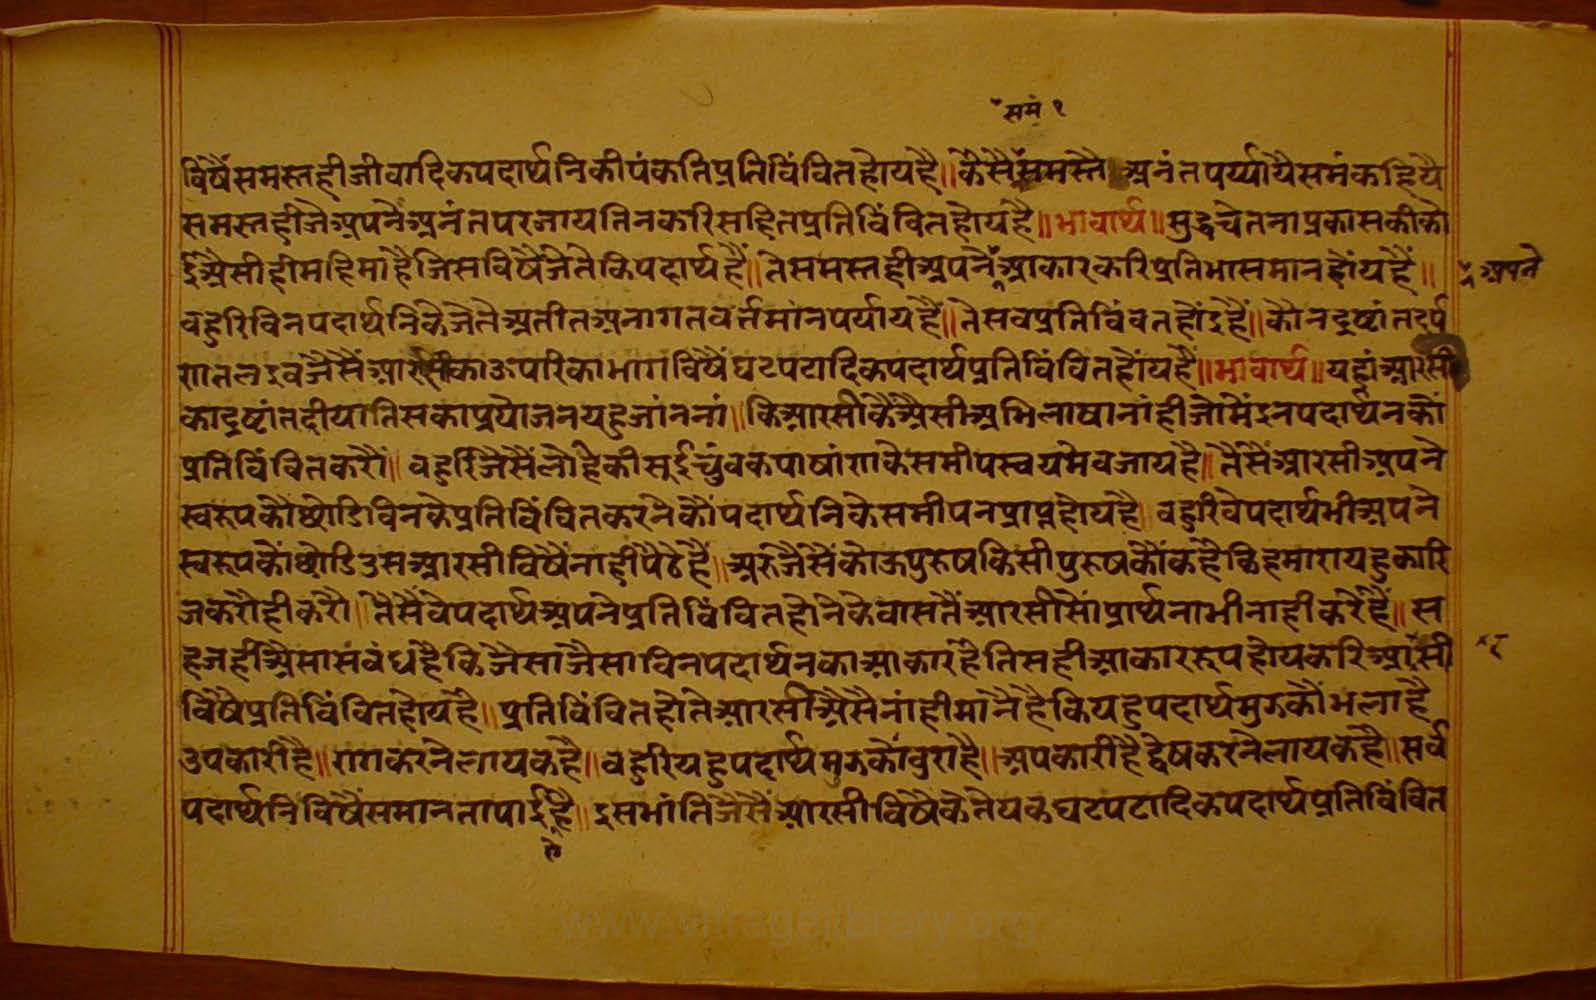 समं १
विषैंसमस्तहीजीवादिकपदार्थनिकीपंकतिप्रतिविंवितहोयहै॥कैसैसमस्तै अनंतपर्य्यायैसमंकहियै
समस्तहीजैअपनैअनंतपरजायतिनकरिसहितप्रतिविंवितहोयहै॥भावार्थ॥सुद्धचेतनाप्रकासकीको
ईअैसीहीमहिमाहैजिसविषैजेतेकिपदार्थहैं॥तेसमस्तहीअपनैआकारकरिप्रतिभासमानहोंयहैं॥
अपने
वहुरिविनपदार्थनिकेजेतेअतीतअनागतवर्त्तमांनपर्यायहैं॥तेसवप्रतिविंवतहोंइहैं॥कौनदृष्टांतदर्प
णतलइवजैसैंआरसीकाऊपरिकाभागविषैंघटपटादिकपदार्थप्रतिविंवितहोंयहै॥भावार्थ॥यहांआरसी
कादृष्टांतदीयातिसकाप्रयोजनयहुजांननां॥किआरसीकैअैसीअभिलाषानांहीजोमैंइनपदार्थनकौं
प्रतिविंवितकरौं॥वहुरिजैसैंलोहैकीसूईचुंवकपाषांणकेसमीपस्वयमेवजायहै॥तैसैंआरसीअपने
स्वरूपकौंछोडिविनकेप्रतिविंवितकरनेकौंपदार्थनिकेसमीपनप्राप्तहोयहै॥वहुरिवेपदार्थभीअपने
स्वरूपकौंछोडिउसआरसीविषैंनाहीपैठेहैं॥अरुजैसैंकोऊपुरुषकिसीपुरुषकौंकहैकिहमारायहुकारि
जकरौहीकरौ॥तैसैंवेपदार्थअपनेप्रतिविंवितहोनेकेवासतैंआरसीसौंप्रार्थनाभीनाहीकरेंहैं॥स
हजहीअैसासंवंधहैकिजैसाजैसाविनपदार्थनकाआकारहैतिसहीआकाररूपहोयकरिआरसी
विषैप्रतिविंवितहोयहै॥प्रतिविंवितहोतेआरसीअैसैनांहीमांनैहैकियहुपदार्थमुझकौंभलाहै
उपकारीहै॥रागकरनेलायकहै॥वहुरियहुपदार्थमुझकौंवुराहै॥अपकारीहैद्वेषकरनेलायकहै॥सर्व
पदार्थनिविषैंसमानतापाईहै॥इसभांतिजैसैंआरसीविषैकेतेयकघटपटादिकपदार्थप्रतिविंवित